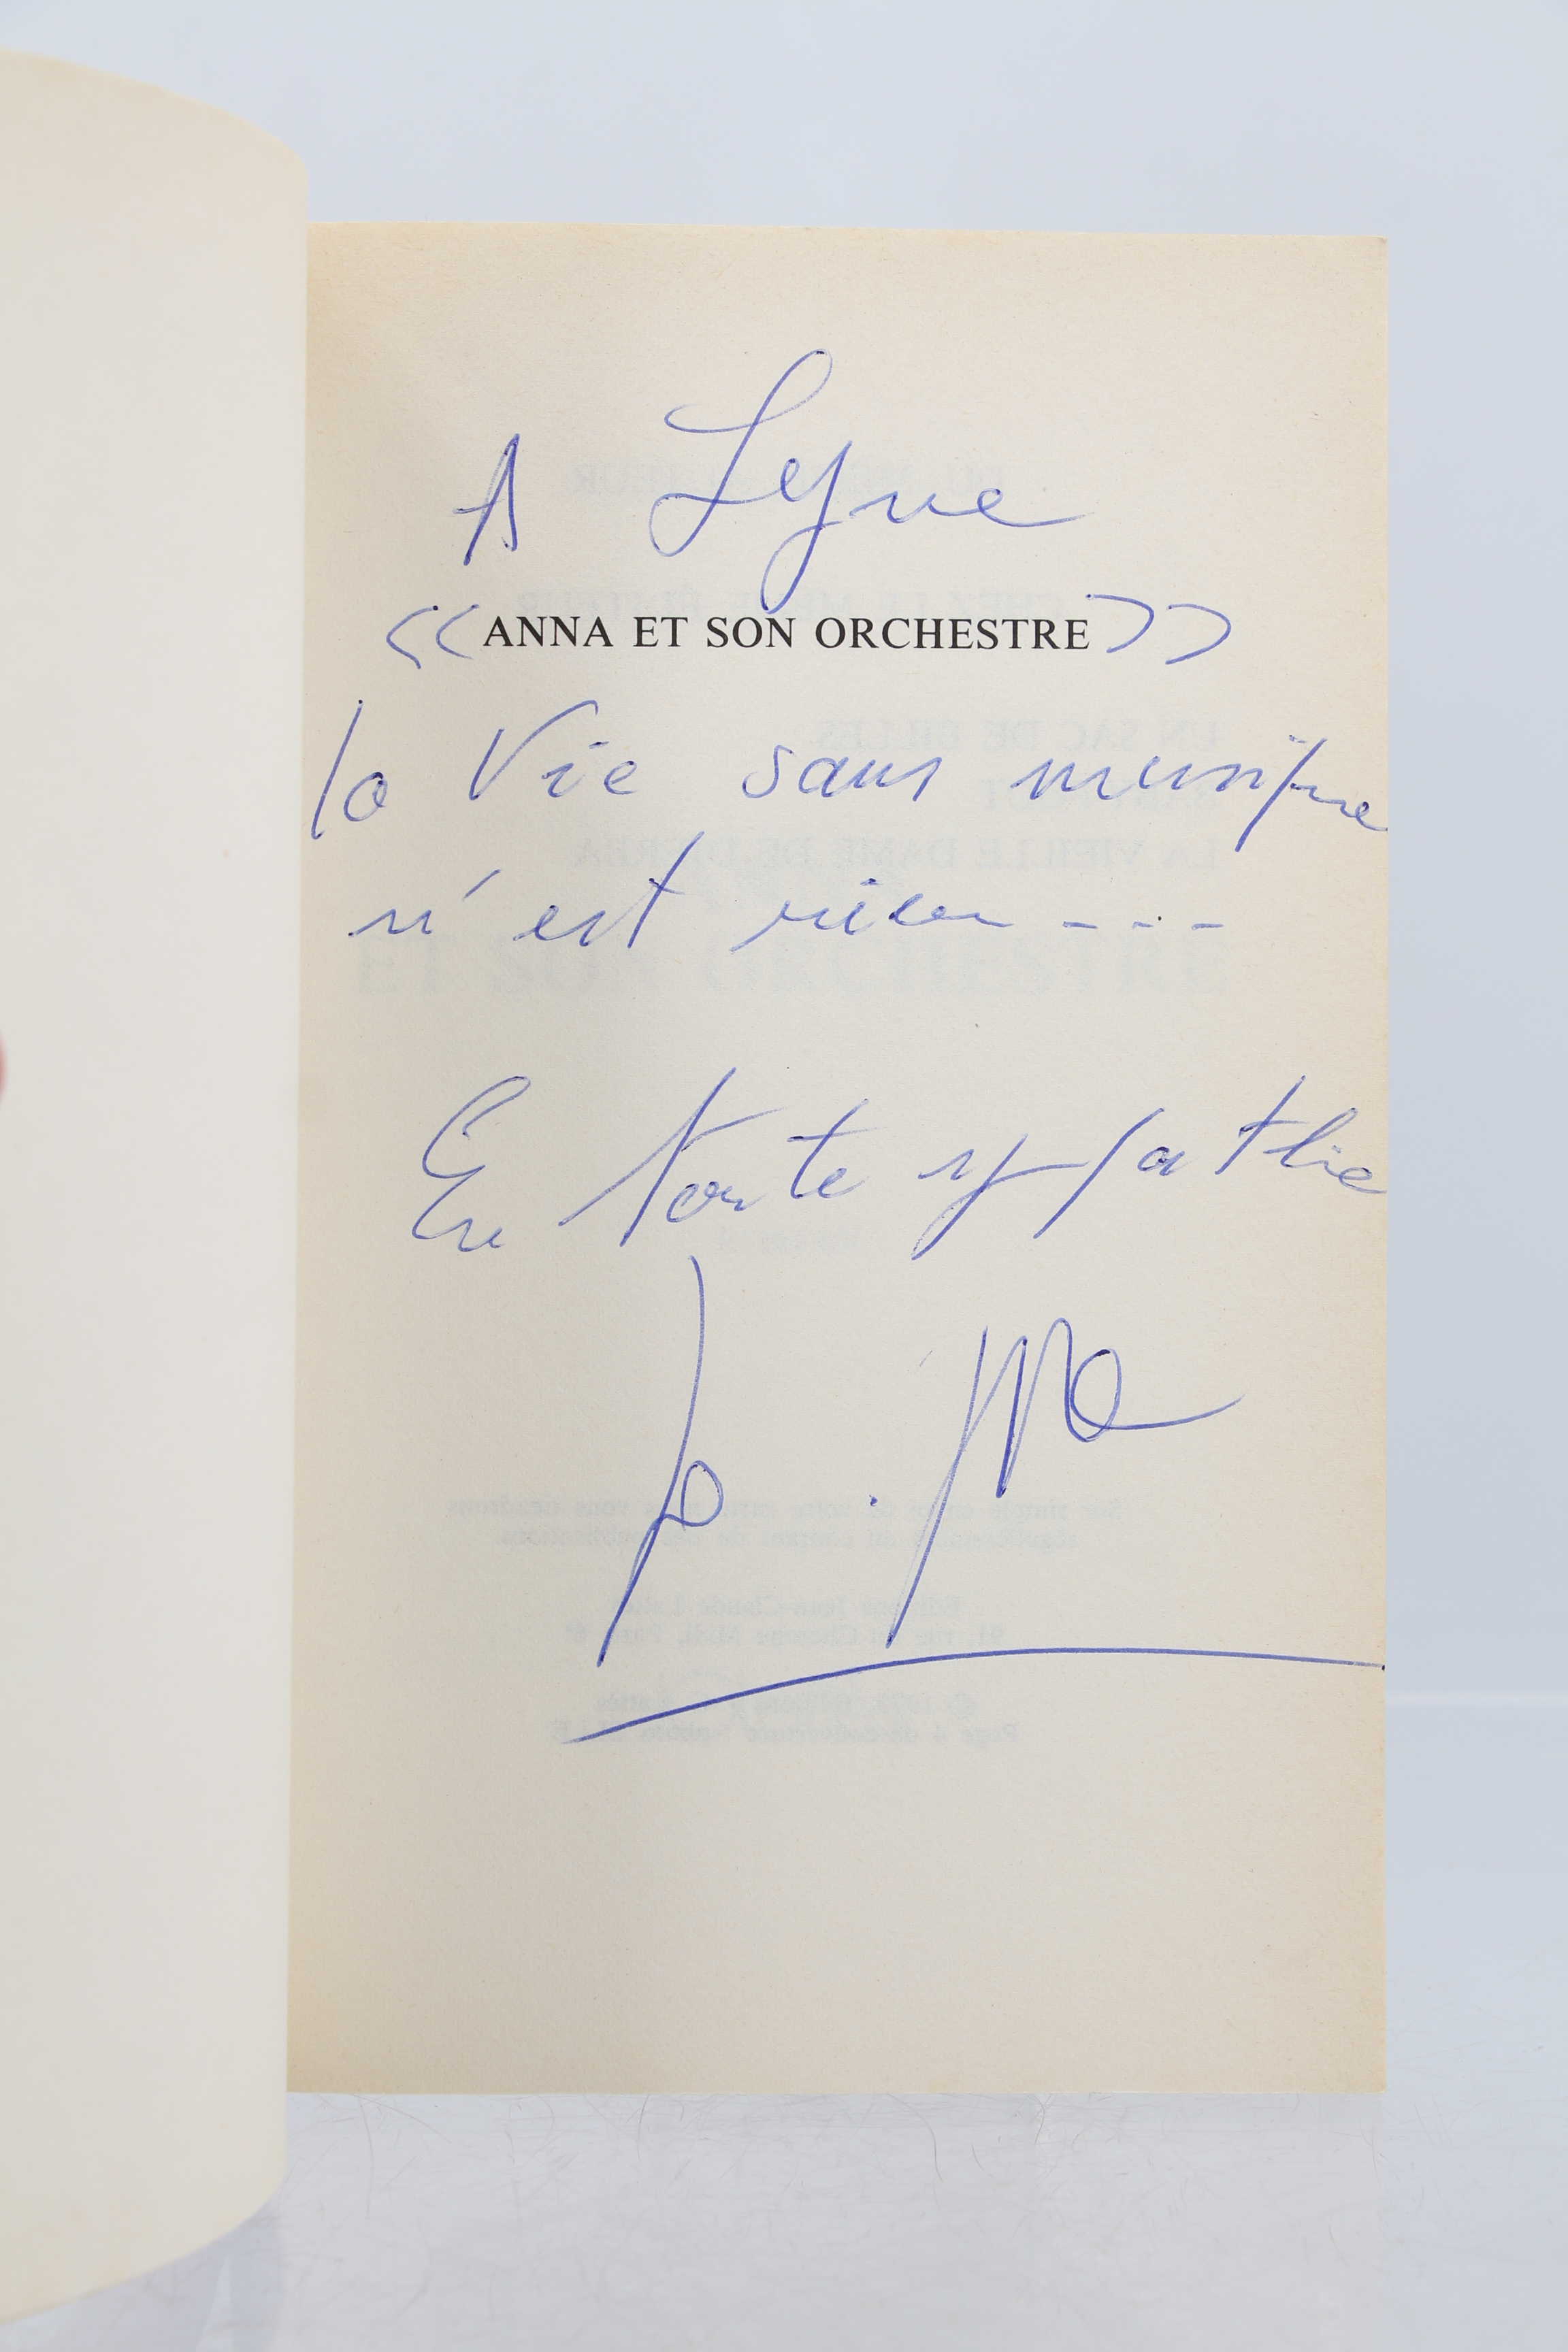 A Lyne
« ANNA ET SON ORCHESTRE »
la Vie sans musique
n'est rien ---
En toute sympathie
Jo.